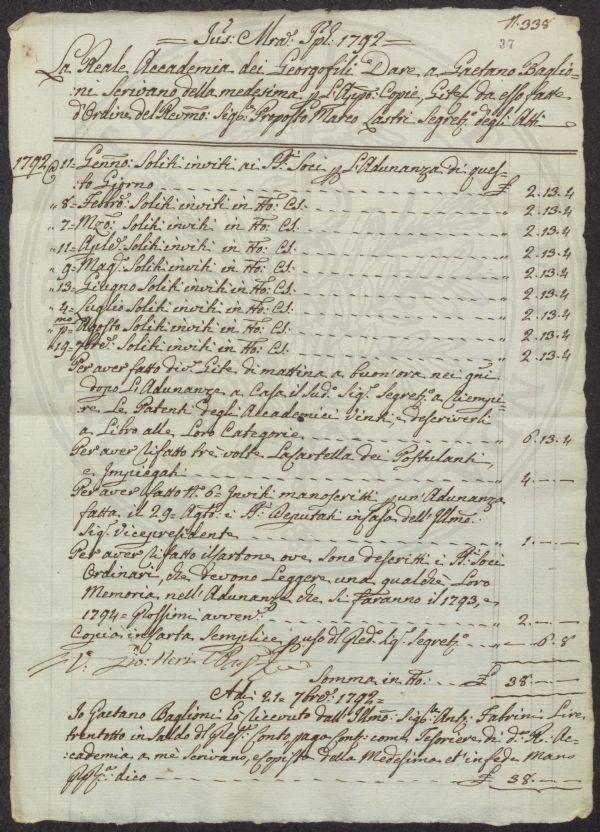 N. 338
37
1792
La Reale Accademia dei Georgofili Dare a Gaetano Baglio=
ni Scrivano della medesima p L'Appo: Copie, Gite da esso fatte
d'Ordine del Revmo: Sigr: Proposto Marco Lastri Segreto: degli Atti
1792 @ 11= Genno: Soliti inviti ai SSi: Soci p L'Adunanza di ques=
to Giorno £ 2.13.4
" 8= Febbro: Soliti inviti in tto: Cs: " 2.13.4
" 7= Mzo: Soliti inviti in tto: Cs: " 2.13.4
" 11= Aple: Soliti inviti in tto: Cs: " 2.13.4
" 9= Magg: Soliti inviti in tto: Cs: " 2.13.4
" 13= Giugno Soliti inviti in tto: Cs: " 2.13.4
" 4= Luglio Soliti inviti in tto: Cs: " 2.13.4
" pmo= Agosto Soliti inviti in tto: Cs: " 2.13.4
" 19= 7bre: Soliti inviti in tto: Cs: " 2.13.4
Per aver fatto div: Gite di mattina a buon'ora nei gni
dopo L'Adunanze a Casa il Sudo: Sigr: Segreto: a riempi=
re Le Patenti degli Accademici vinti, e descriverli
a Libro alle Loro Categorie " 6.13.4
Per aver rifatto tre volte La Cartella dei Postulanti,
e Impiegati " 4.—.—
Per aver fatto N: 6= Inviti manoscritti p un'Adunanza
fatta il 29 Agto: e SSi: Deputati in Casa dell'Illmo:
Sigr: Vicepresidente " 1.—.—
Per aver rifatto il Cartone ove sono descritti i SSi: Soci
Ordinari, che devono Leggere una qualche Loro
Memoria nell'Adunanze che si faranno il 1793, e
1794= prossimi avveno: " 2.—.—
Copia in Carta Semplice p uso dl Predo: Sigr: Segreto: " —.6.8
Somma in tto: £ 38.—.—
Ad: 21= 7bre: 1792=
Io Gaetano Baglioni ho ricevuto dall'Illmo: Sigr: Anto: Fabrini Lire
trentotto in Saldo dl Preste: Conto, paga Conti: come Tesoriere di da: Rl: Ac=
:cademia a mè Scrivano, e Copista della Medesima et in fede Mano
dico £ 38.—.—